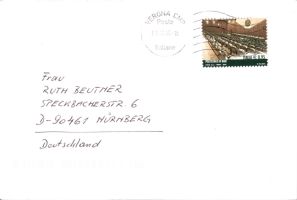 VERONA CMP
Poste
Italiane
Frau
RUTH BEUTNER
SPECKBACHERSTRAßE 6
D-90461 NÜRNBERG
Deutschland